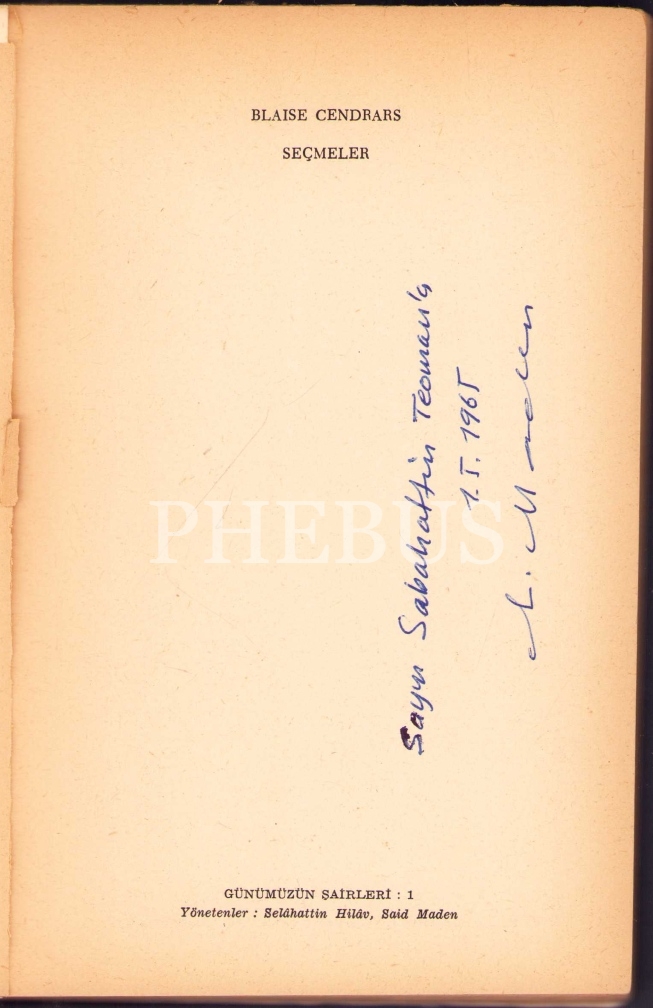 BLAISE CENDRARS
SEÇMELER
Sayın Sabahattin Teoman'a
1.I.1965
S. Maden
PHEBUS
GÜNÜMÜZÜN ŞAİRLERİ : 1
Yönetenler : Selâhattin Hilâv, Said Maden